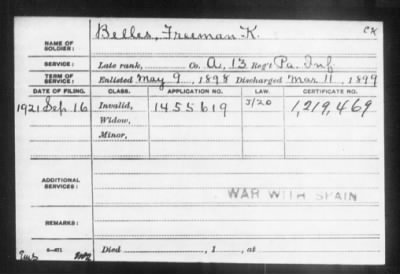 Belles, Freeman K. CK
NAME OF SOLDIER:
SERVICE: Late rank, Co. A, 13 Reg't Pa. Inf
TERM OF SERVICE: Enlisted May 9, 1898 Discharged Mar. 11, 1899
DATE OF FILING. CLASS. APPLICATION NO. LAW. CERTIFICATE NO.
1921 Sep 16 Invalid, 1455619 J/20 1,219,469
Widow,
Minor,
ADDITIONAL SERVICES:
WAR WITH SPAIN
REMARKS:
Died , 1 , at